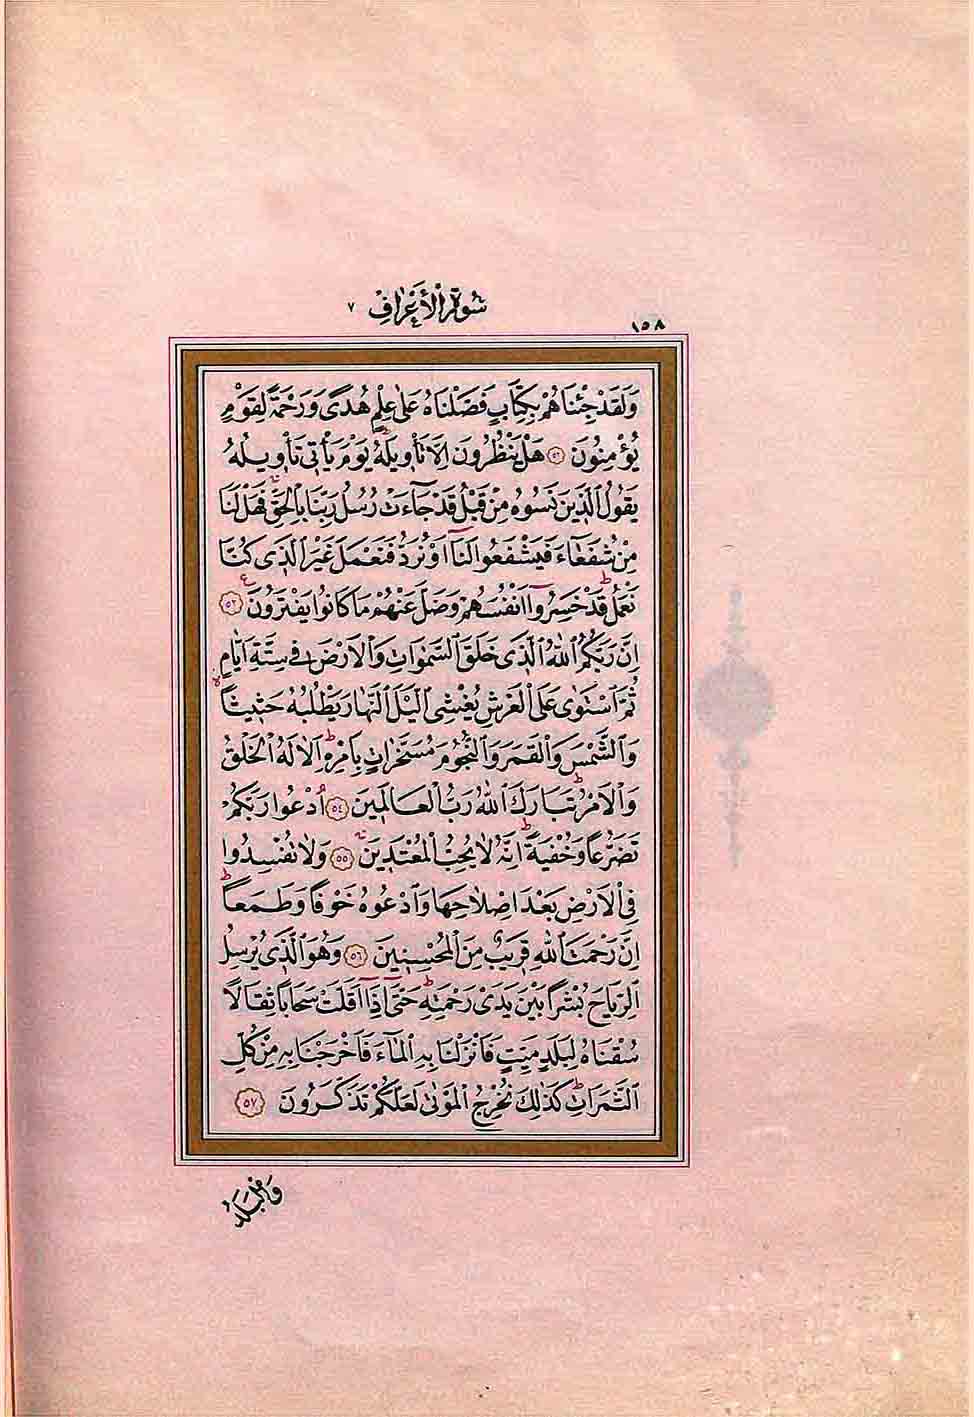 سُورَةُ الْأَعْرَافِ ٧
١٥٨
وَلَقَدْ جِئْنَاهُمْ بِكِتَابٍ فَصَّلْنَاهُ عَلٰى عِلْمٍ هُدًى وَرَحْمَةً لِقَوْمٍ
يُؤْمِنُونَ ﴿٥٢﴾ هَلْ يَنْظُرُونَ اِلَّا تَأْوِيلَهُ يَوْمَ يَأْتِى تَأْوِيلُهُ
يَقُولُ الَّذِينَ نَسُوهُ مِنْ قَبْلُ قَدْ جَاءَتْ رُسُلُ رَبِّنَا بِالْحَقِّ فَهَلْ لَنَا
مِنْ شُفَعَاءَ فَيَشْفَعُوا لَنَا اَوْ نُرَدُّ فَنَعْمَلَ غَيْرَ الَّذِى كُنَّا
نَعْمَلُ قَدْ خَسِرُوا اَنْفُسَهُمْ وَضَلَّ عَنْهُمْ مَا كَانُوا يَفْتَرُونَ ﴿٥٣﴾
اِنَّ رَبَّكُمُ اللّٰهُ الَّذِى خَلَقَ السَّمٰوَاتِ وَالْاَرْضَ فِى سِتَّةِ اَيَّامٍ
ثُمَّ اسْتَوٰى عَلَى الْعَرْشِ يُغْشِى الَّيْلَ النَّهَارَ يَطْلُبُهُ حَثِيثًا
وَالشَّمْسَ وَالْقَمَرَ وَالنُّجُومَ مُسَخَّرَاتٍ بِاَمْرِهِ اَلَا لَهُ الْخَلْقُ
وَالْاَمْرُ تَبَارَكَ اللّٰهُ رَبُّ الْعَالَمِينَ ﴿٥٤﴾ اُدْعُوا رَبَّكُمْ
تَضَرُّعًا وَخُفْيَةً اِنَّهُ لَا يُحِبُّ الْمُعْتَدِينَ ﴿٥٥﴾ وَلَا تُفْسِدُوا
فِى الْاَرْضِ بَعْدَ اِصْلَاحِهَا وَادْعُوهُ خَوْفًا وَطَمَعًا
اِنَّ رَحْمَتَ اللّٰهِ قَرِيبٌ مِنَ الْمُحْسِنِينَ ﴿٥٦﴾ وَهُوَ الَّذِى يُرْسِلُ
الرِّيَاحَ بُشْرًا بَيْنَ يَدَىْ رَحْمَتِهِ حَتّٰى اِذَا اَقَلَّتْ سَحَابًا ثِقَالًا
سُقْنَاهُ لِبَلَدٍ مَيِّتٍ فَاَنْزَلْنَا بِهِ الْمَاءَ فَاَخْرَجْنَا بِهِ مِنْ كُلِّ
الثَّمَرَاتِ كَذٰلِكَ نُخْرِجُ الْمَوْتٰى لَعَلَّكُمْ تَذَكَّرُونَ ﴿٥٧﴾
وَالْبَلَدُ